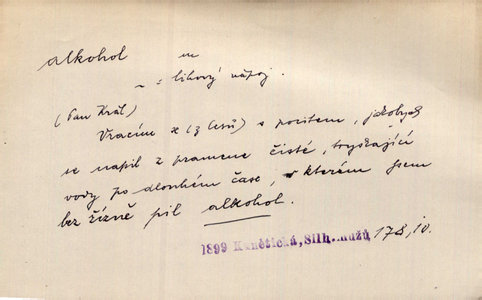 alkohol m
~ = lihový nápoj.
(Pan Král)
Vracím se (z lesů) s pocitem, jakobych
se napil z pramene čisté, tryskající
vody po dlouhém čase, v kterém jsem
bez žízně pil alkohol.
1899 Kunětická, Silh. mužů 178, 10.